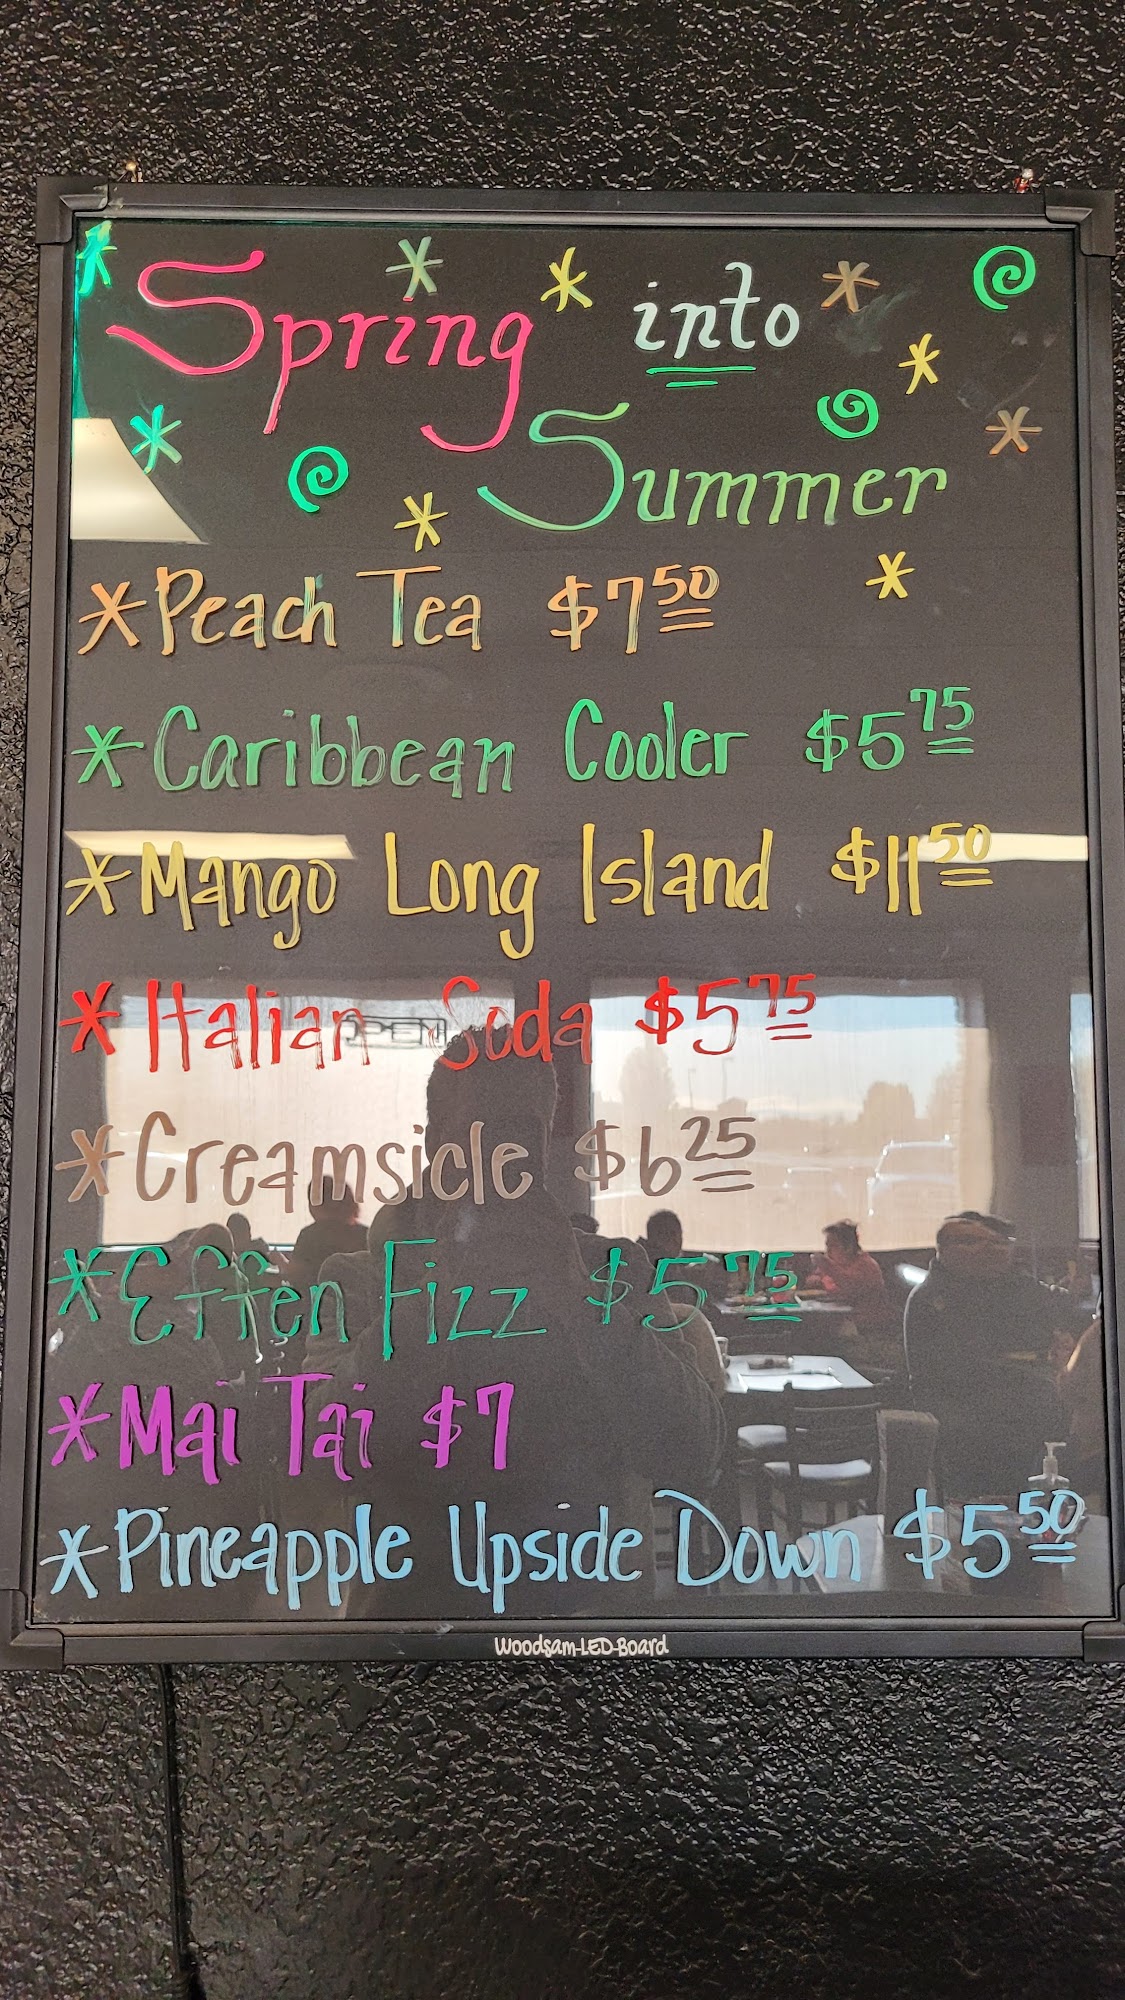 Spring into
Summer
*Peach Tea $7 50
*Caribbean Cooler $5 75
*Mango Long Island $11 50
*Italian Soda $5 75
*Creamsicle $6 25
*Effen Fizz $5 75
*Mai Tai $7
*Pineapple Upside Down $5 50
Woodsam-LED-Board